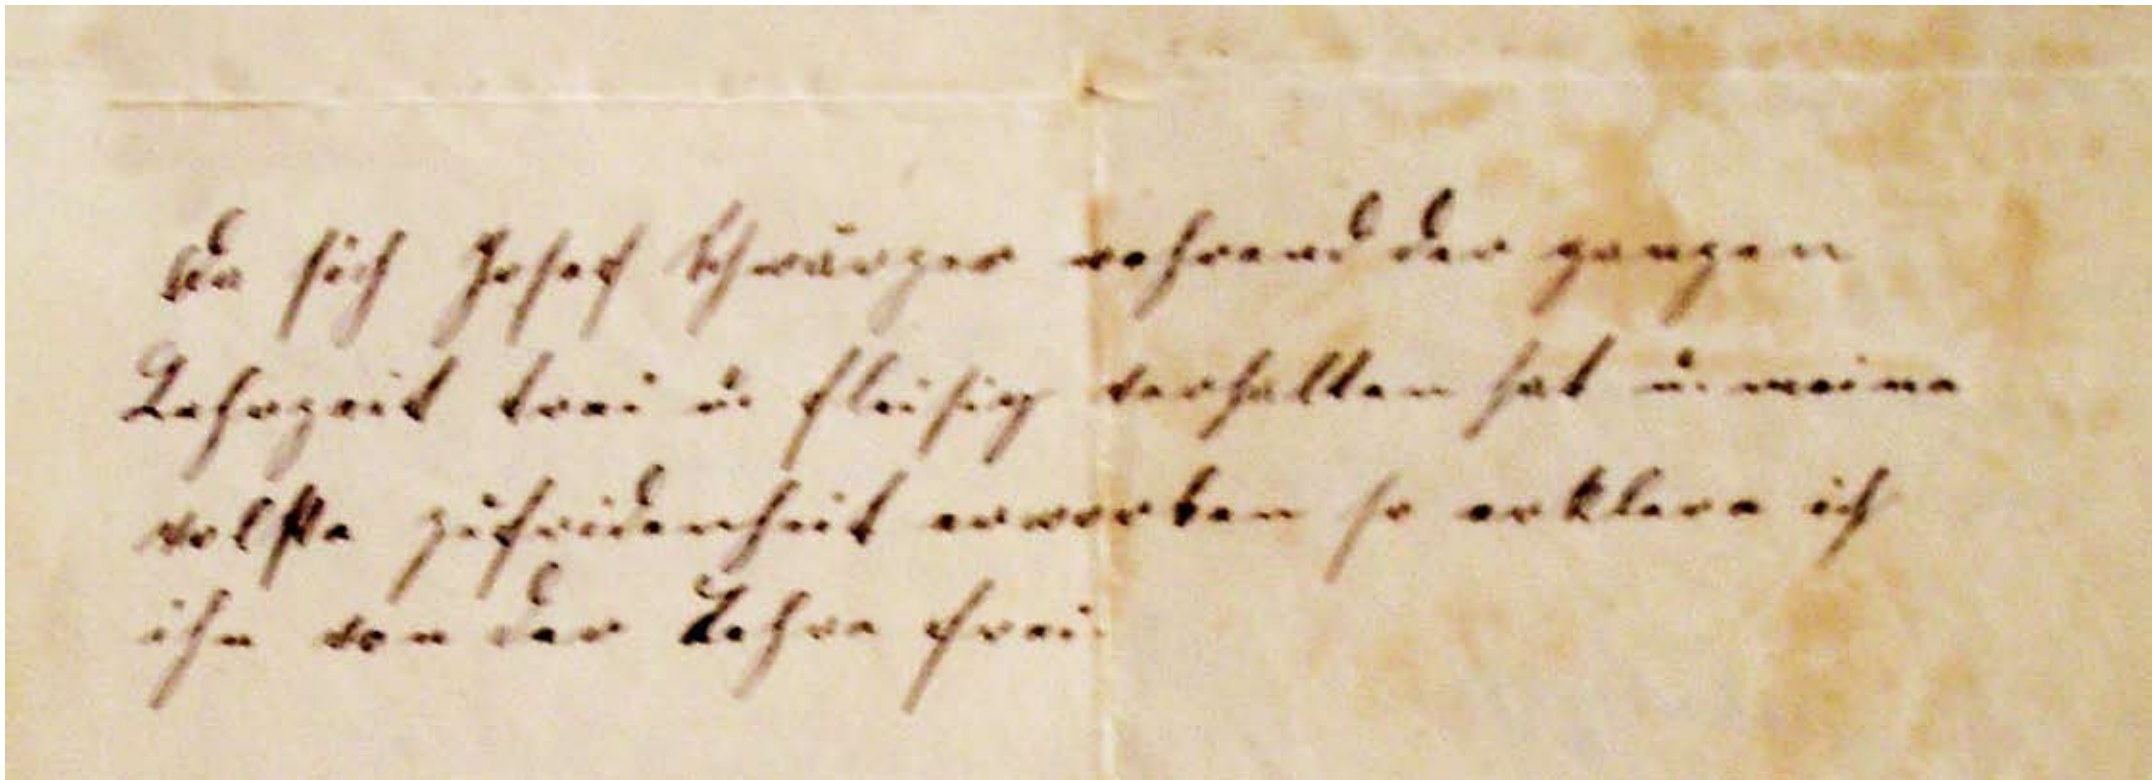 Da sich Josef Schwarzer wehrend der ganzen
Lehrzeit trei u. fleisig verhalten hat u. meine
volste zufridenheit erworben so erklere ich
ihn von der Lehre frei.